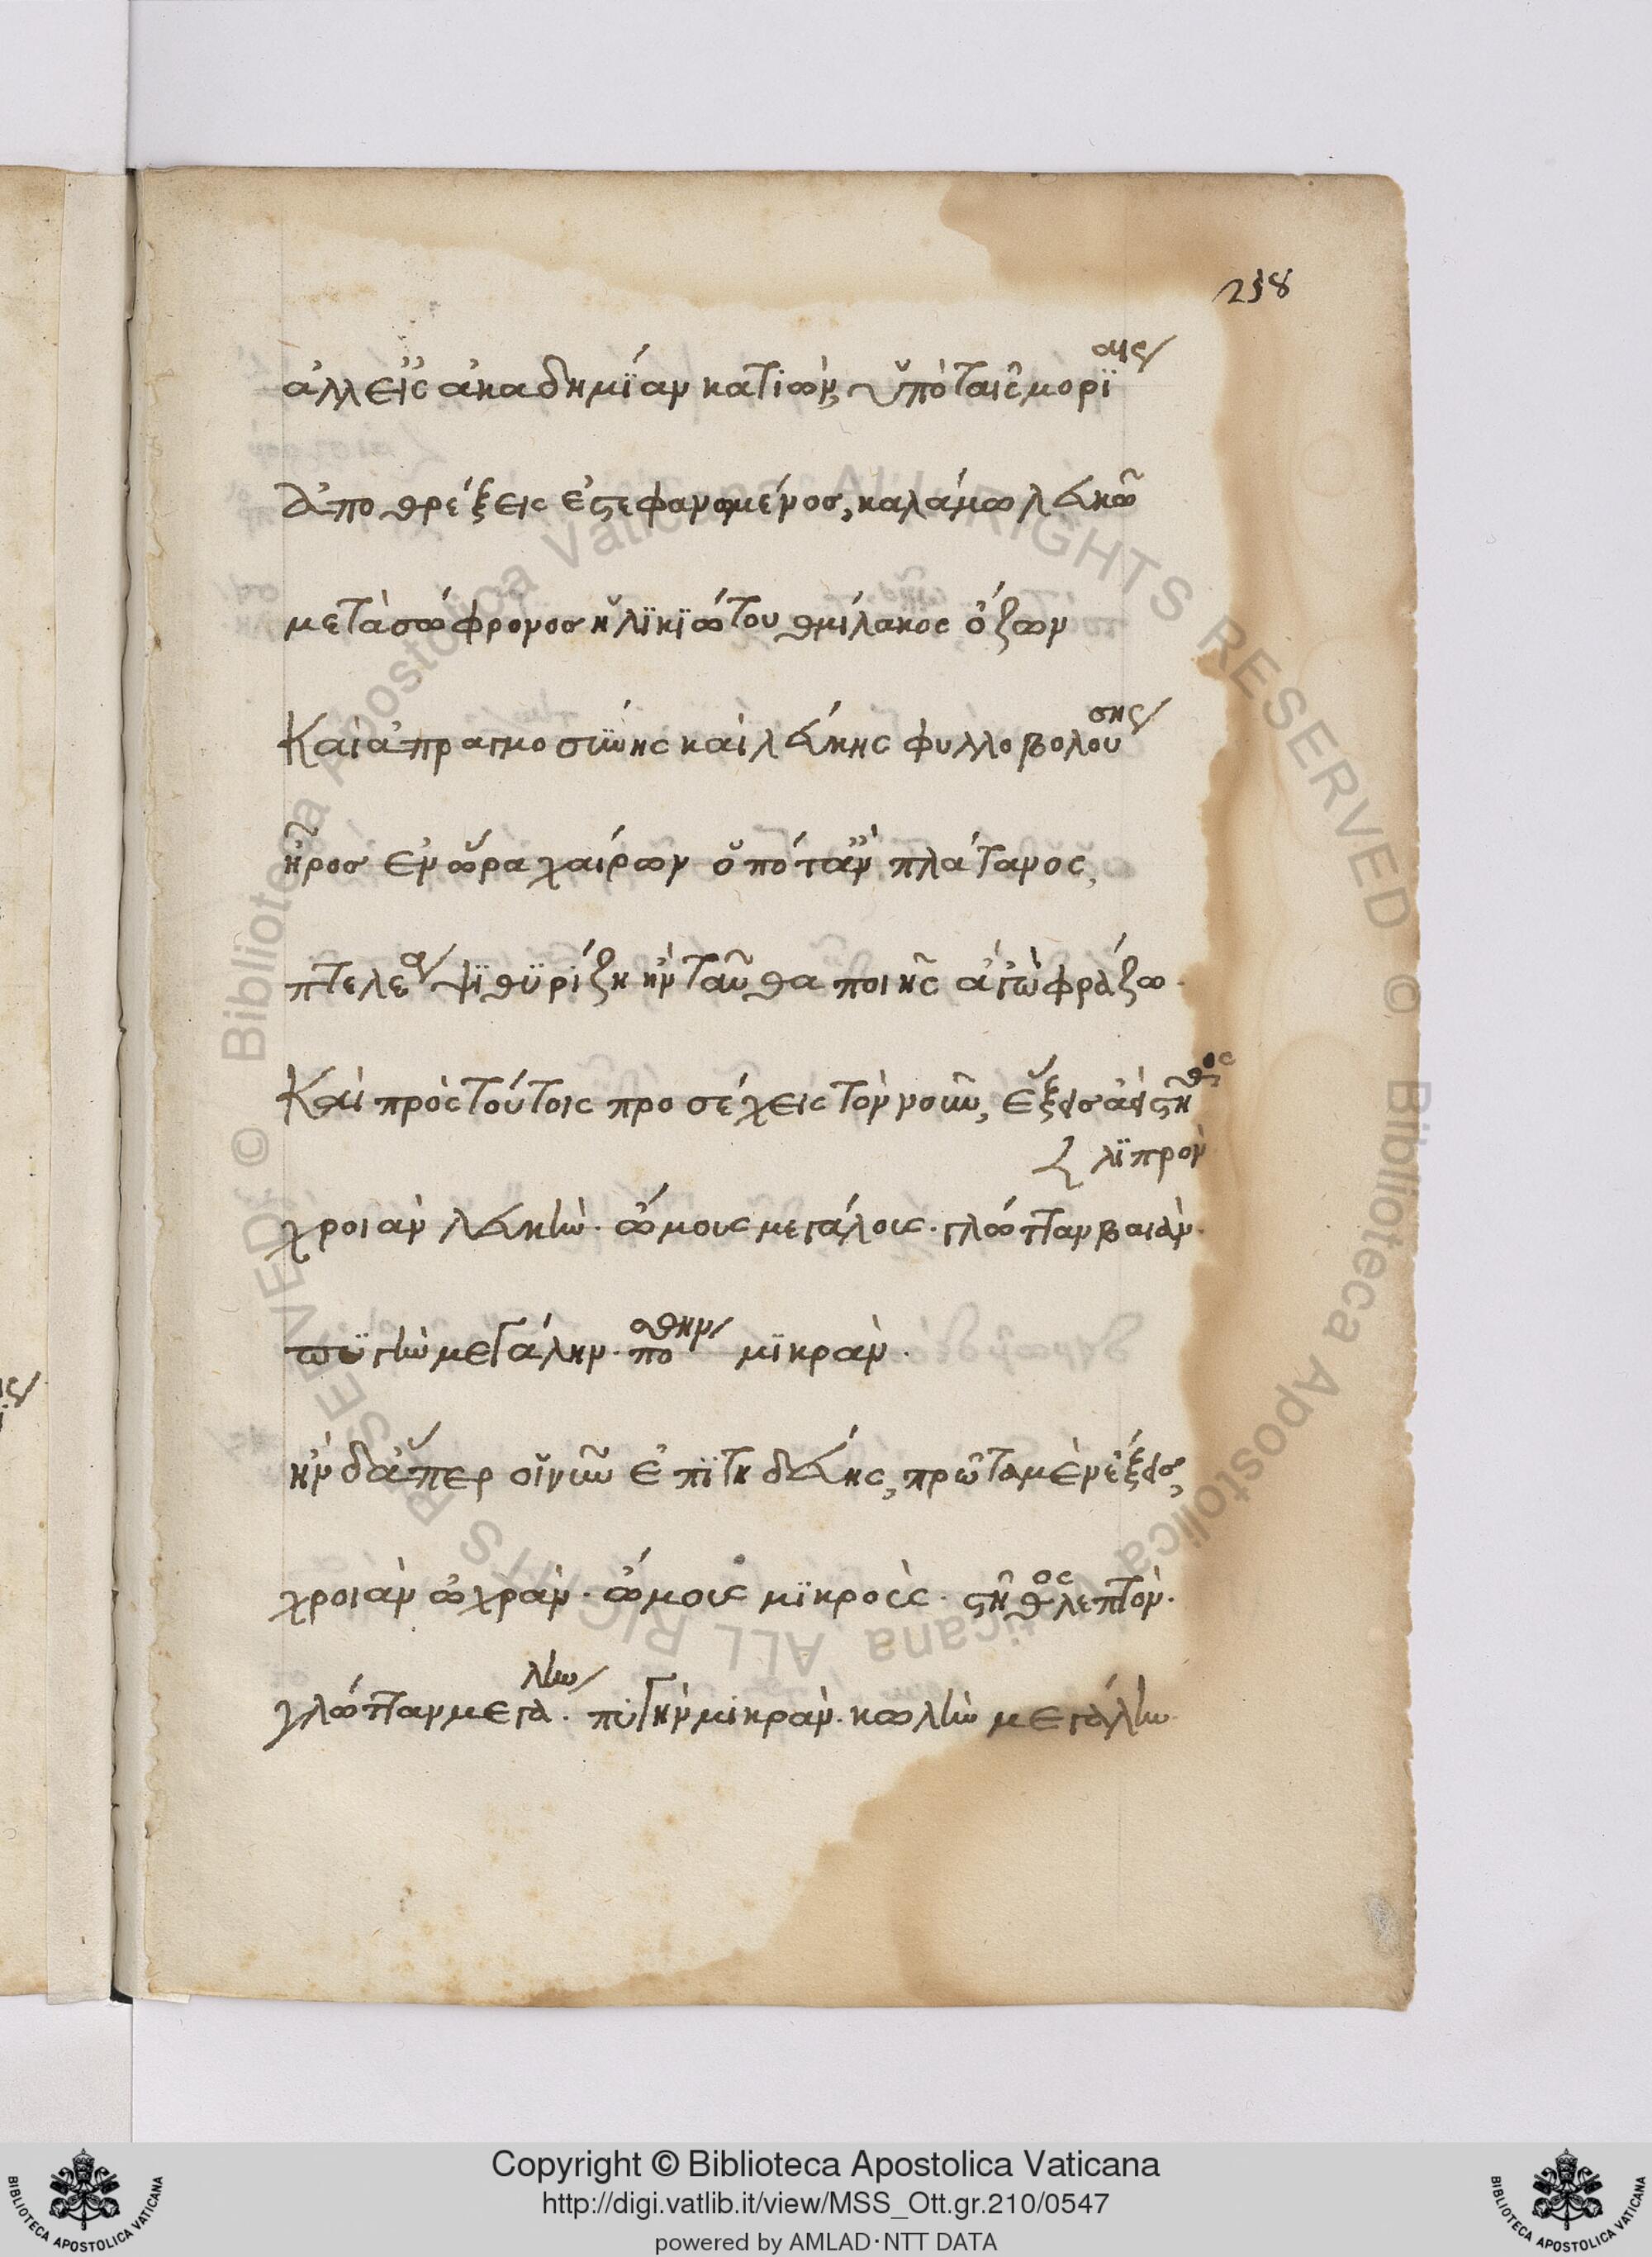 258
ἀλλ εἰς ἀκαδημΐαν κατιὼν, ὑπὸ ταῖς μορΐαις
ἀποθρέξεις ἐστεφανωμένος, καλάμω λευκῶ
μετὰ σώφρονος ἡλϊκϊώτου θμίλακος ὄζων
Καὶ ἀπραγμοσύνης καὶ λεύκης φυλλοβολούσης
ἦρος ἐν ὥρα χαίρων ὁπόταν πλάτανος,
πτελεα ψϊθϋρίζη ἢν ταῦθα ποιῆς ἁγὼ φράζω.
Καὶ πρὸς τούτοις προσέχεις τὸν νοῦν, ἕξεις ἀεὶ στῆθος
λϊπρὸν
χροιὰν λευκὴν. ὤμους μεγάλους. γλῶτταν βαιὰν.
πϋγὴν μεγάλην. ποσθην μϊκρὰν.
ἢν δ ἅπερ οἱ νῦν ἐπϊτηδεύης, πρῶτα μὲν ἕξεις,
χροιὰν ὠχρὰν. ὤμους μϊκροὺς. στῆθος λεπτὸν.
γλῶτταν μεγάλην. πυγὴν μικρὰν. κωλὴν μεγάλην
Copyright © Biblioteca Apostolica Vaticana
http://digi.vatlib.it/view/MSS_Ott.gr.210/0547
powered by AMLAD·NTT DATA